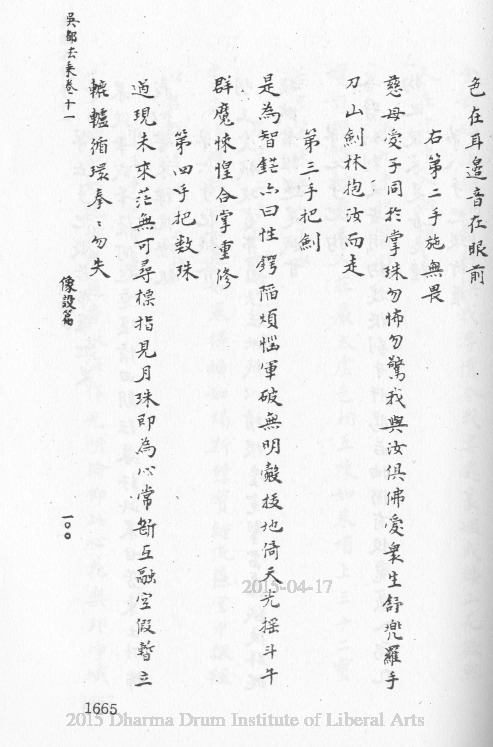 色在耳邊音在眼前
右第二手施無畏
慈母愛子同於掌珠勿怖勿驚我與汝俱佛愛衆生舒兜羅手
刀山劍林抱汝而走
第三手把劍
是為智鋩亦曰性鍔陷煩惱軍破無明殼拔地倚天光搖斗牛
群魔悚惶合掌重修
第四手把数珠
過現未來茫無可尋標指見月珠即為心常斷互融空假暫立
轆轤循環拳〻勿失
吳都法乘卷十一
像設篇
一〇〇
1665
2015-04-17
2015 Dharma Drum Institute of Liberal Arts